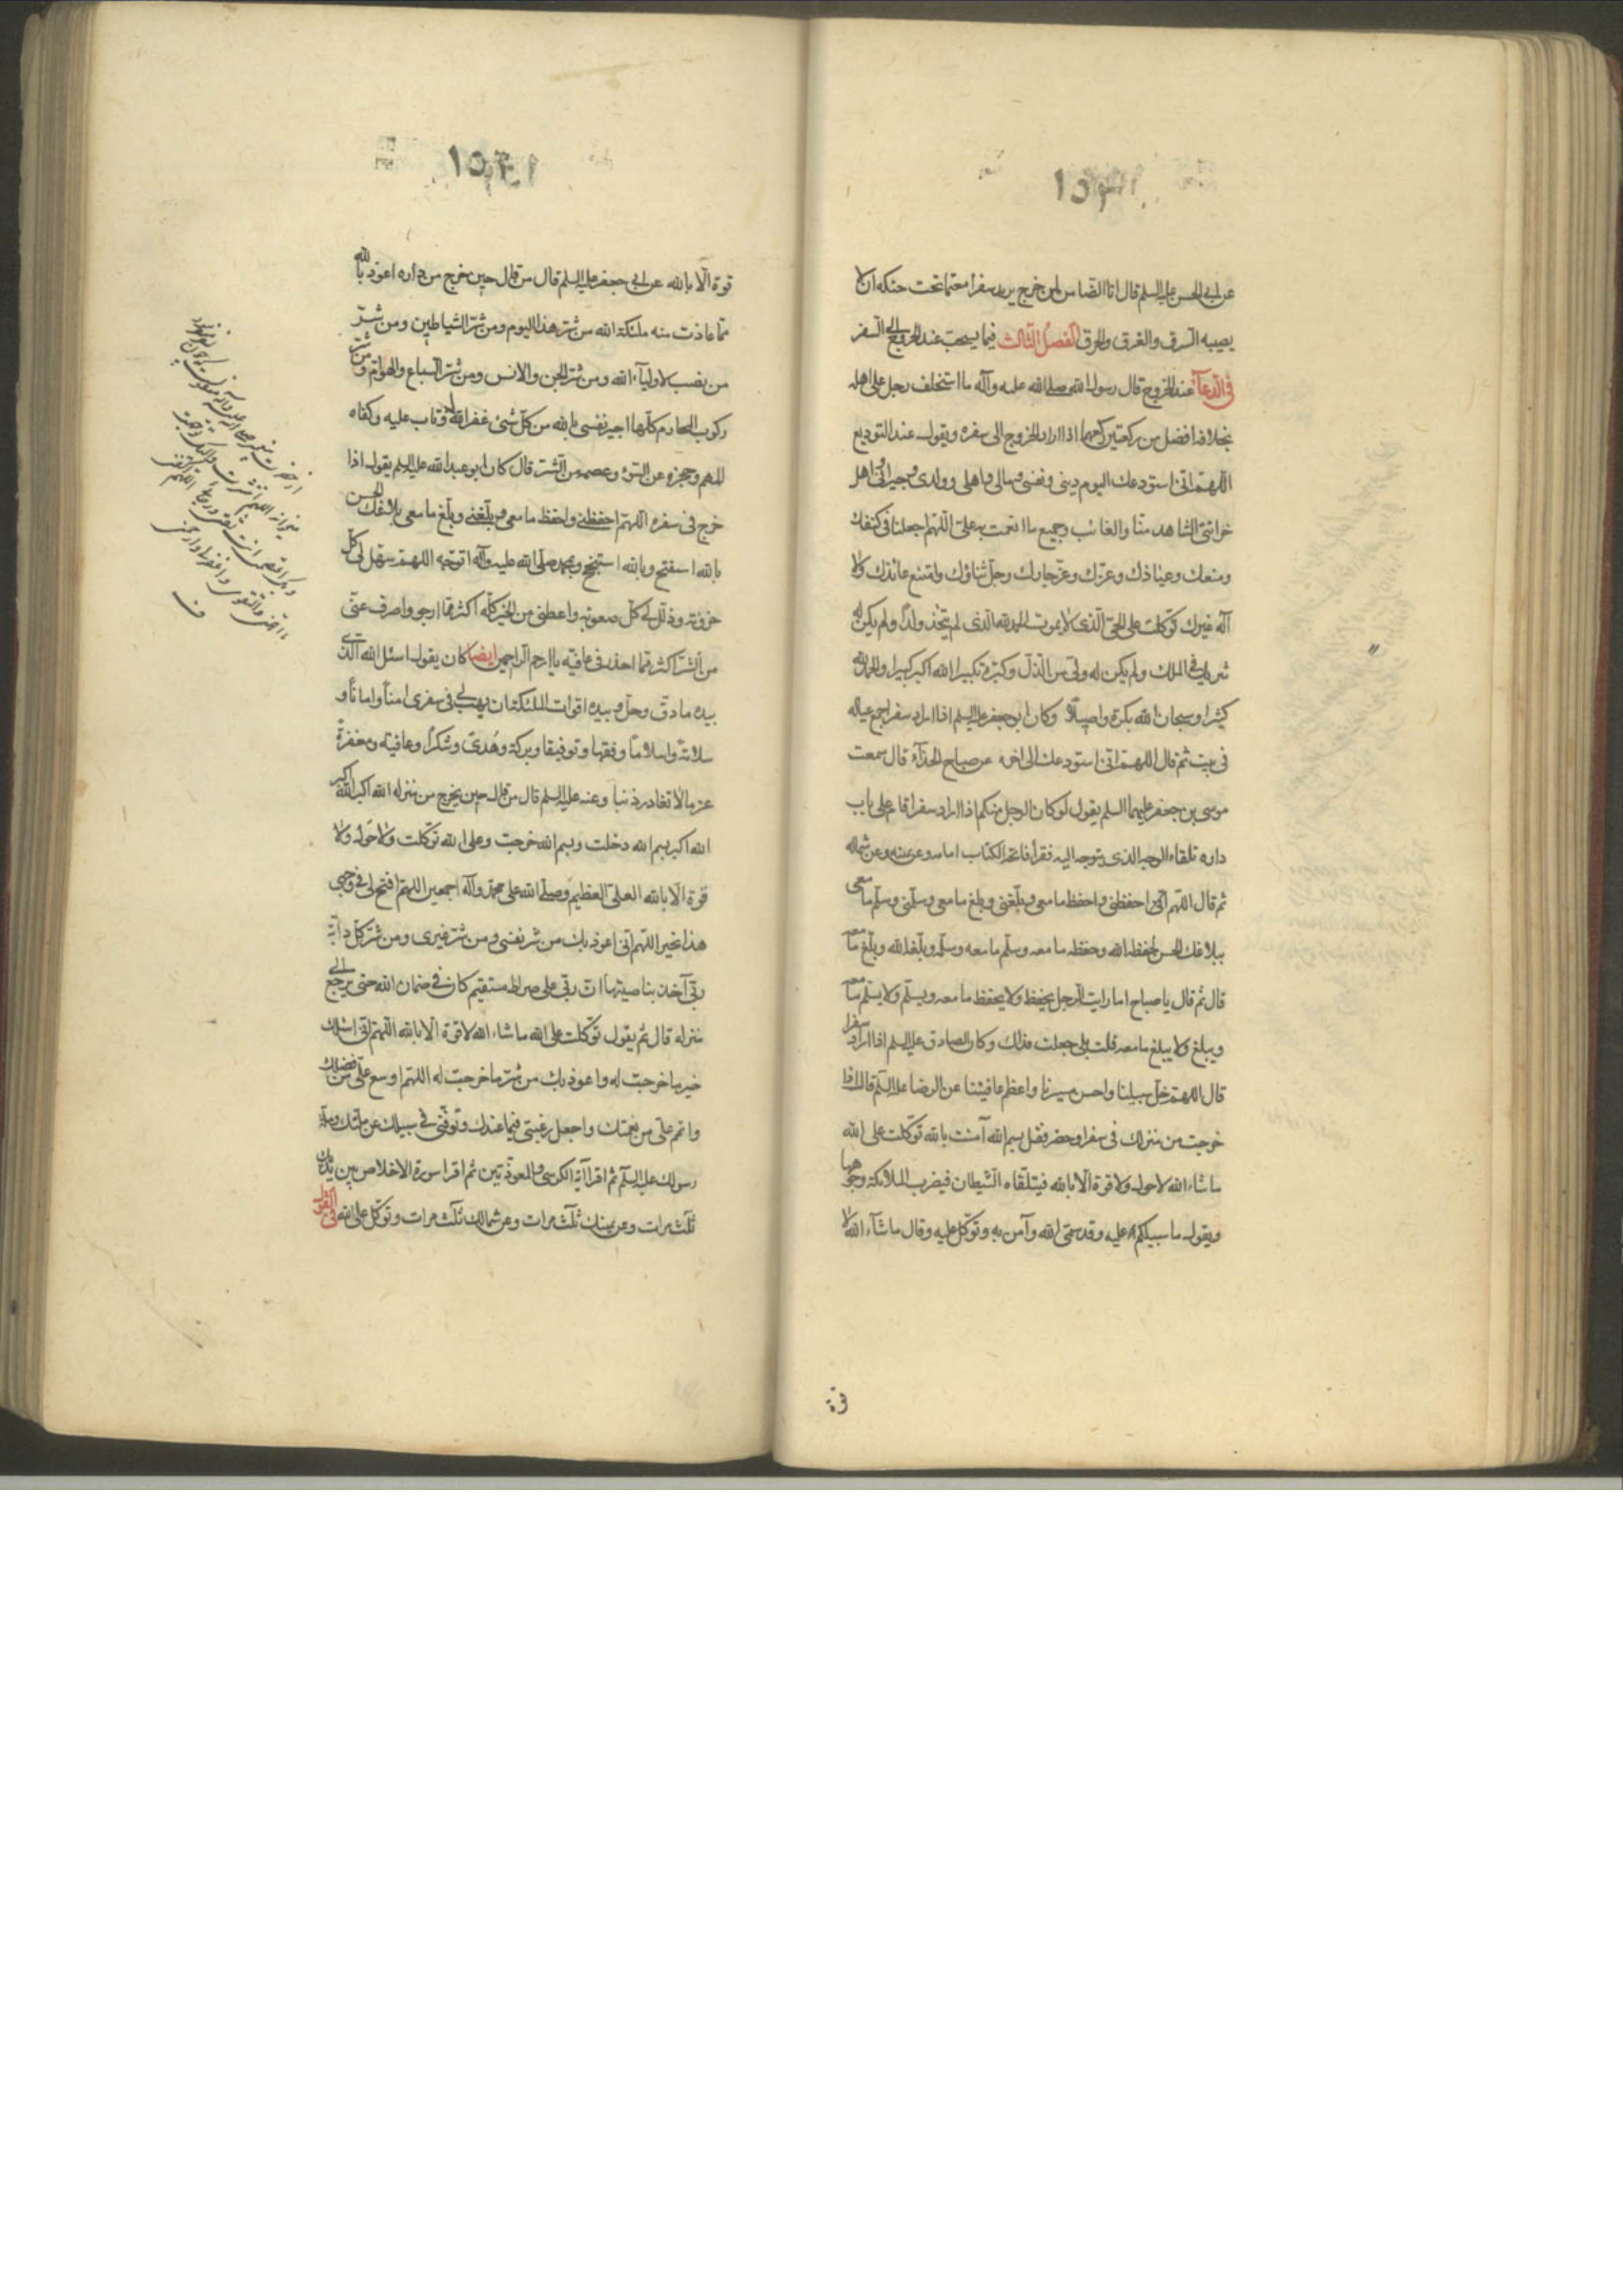 عن ابي الحسن عليه السلم قال انا الضامن لمن خرج يريد سفرا معتما تحت حنكه ان لا
يصيبه السرق والغرق والحرق الفصل الثالث فيما يستحب عند الخروج الى السفر
في الدعاء عند الخروج قال رسول الله صلى الله عليه وآله ما استخلف رجل على اهله
بخلافة افضل من ركعتين يركعهما اذا اراد الخروج الى سفره ويقول عند التوديع
اللهم انى استودعك اليوم دينى ونفسى ومالى واهلى وولدى وجيرانى واهل
خزانتى الشاهد منا والغائب وجميع ما انعمت به على اللهم اجعلنا فى كنفك
ومنعك وعياذك وعزك وعز جارك وجل ثناؤك وامتنع عائذك ولا
اله غيرك توكلت على الحى الذى لا يموت الحمد لله الذى لم يتخذ ولدا ولم يكن له
شريك فى الملك ولم يكن له ولى من الذل وكبره تكبيرا الله اكبر كبيرا والحمد لله
كثيرا وسبحان الله بكرة واصيلا وكان ابو جعفر عليه السلم اذا اراد سفرا جمع عياله
فى بيت ثم قال اللهم انى استودعك الى اخره عن صباح الحذاء قال سمعت
موسى بن جعفر عليهما السلم يقول لو كان الرجل منكم اذا اراد سفرا قام على باب
داره تلقاء الوجه الذى يتوجه اليه فقرأ فاتحة الكتاب امامه وعن يمينه وعن شماله
ثم قال اللهم احفظنى واحفظ ما معى وبلغنى وبلغ ما معى وسلمنى وسلم ما معى
ببلاغك الحسن لحفظه الله وحفظ ما معه وسلم ما معه وسلمه وبلغه الله وبلغ ما معه
قال ثم قال يا صباح اما رايت الرجل يحفظ ولا يحفظ ما معه ويسلم ولا يسلم ما معه
ويبلغ ولا يبلغ ما معه قلت بلى جعلت فداك وكان الصادق عليه السلم اذا اراد سفرا
قال اللهم خل سبيلنا واحسن مسيرنا واعظم عافيتنا عن الرضا عليه السلم قال اذا
خرجت من منزلك فى سفر او حضر فقل بسم الله آمنت بالله توكلت على الله
ما شاء الله لا حول ولا قوة الا بالله فيتلقاه الشيطان فيضرب الملائكة وجوهها
ويقول ما سبيلكم عليه وقد سمى الله وآمن به وتوكل عليه وقال ما شاء الله لا
قوة
قوة الا بالله عن ابى جعفر عليه السلم قال من قال حين خرج من داره اعوذ بالله
مما عاذت منه ملئكة الله من شر هذا اليوم ومن شر الشياطين ومن شر
من نصب لاولياء الله ومن شر الجن والانس ومن شر السباع والهوام ومن شر
ركوب المحارم كلها اجير نفسى بالله من كل شئ غفر الله له وتاب عليه وكفاه
المهم وحجزه عن السوء وعصمه من الشر قال كان ابو عبد الله عليه السلم يقول اذا
خرج فى سفره اللهم احفظنى واحفظ ما معى وبلغنى وبلغ ما معى ببلاغك الحسن
بالله استفتح وبالله استنجح وبمحمد صلى الله عليه وآله اتوجه اللهم سهل لى كل
حزونة وذلل لى كل صعوبة واعطنى من الخير كله اكثر مما ارجو واصرف عنى
من الشر اكثر مما احذر فى عافية يا ارحم الراحمين ايضا كان يقول اسئل الله الذى
بيده ما دق وجل وبيده اقوات الملئكة ان يهب لى فى سفرى امنا وامانا و
سلامة واسلاما وفقها وتوفيقا وبركة وهدى وشكرا وعافية ومغفرة
عزما لا تغادر ذنبا وعنه عليه السلم قال من قال حين يخرج من منزله الله اكبر الله اكبر
الله اكبر بسم الله دخلت وبسم الله خرجت وعلى الله توكلت ولا حول ولا
قوة الا بالله العلى العظيم وصلى الله على محمد وآله اجمعين اللهم افتح لى فى وجهى
هذا بخير اللهم انى اعوذ بك من شر نفسى ومن شر غيرى ومن شر كل دابة
ربى آخذ بناصيتها ان ربى على صراط مستقيم كان فى ضمان الله حتى يرجع الى
منزله قال ثم يقول توكلت على الله ما شاء الله لا قوة الا بالله اللهم انى اسئلك
خير ما خرجت له واعوذ بك من شر ما خرجت له اللهم اوسع على من فضلك
واتمم على من نعمتك واجعل رغبتى فيما عندك وتوفنى فى سبيلك على ملتك وملة
رسولك عليه السلم ثم اقرا آية الكرسى والمعوذتين ثم اقرا سورة الاخلاص بين يديك
ثلث مرات وعن يمينك ثلث مرات وعن شمالك ثلث مرات وتوكل على الله فى القول